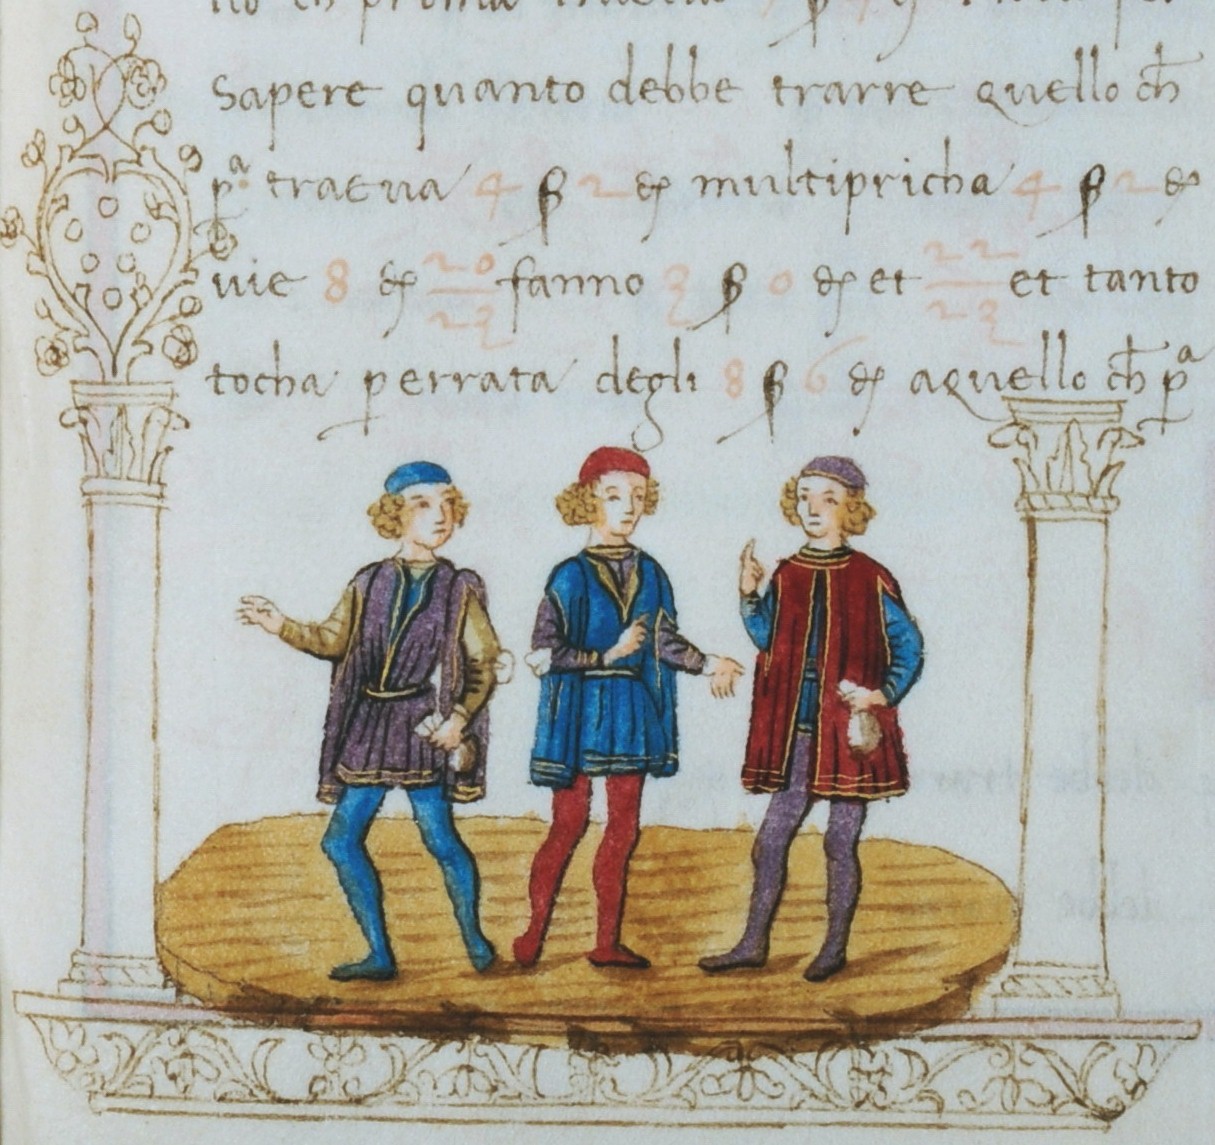 Sapere quanto debbe trarre quello ch̄
pª traeva 4 ꝭ 2 ꝺ multipricha 4 ꝭ 2 ꝺ
vie 8 ꝺ 20/23 fanno 3 ꝭ 0 ꝺ et 22/23 et tanto
tocha perrata degli 8 ꝭ 6 ꝺ aquello ch̄ pª